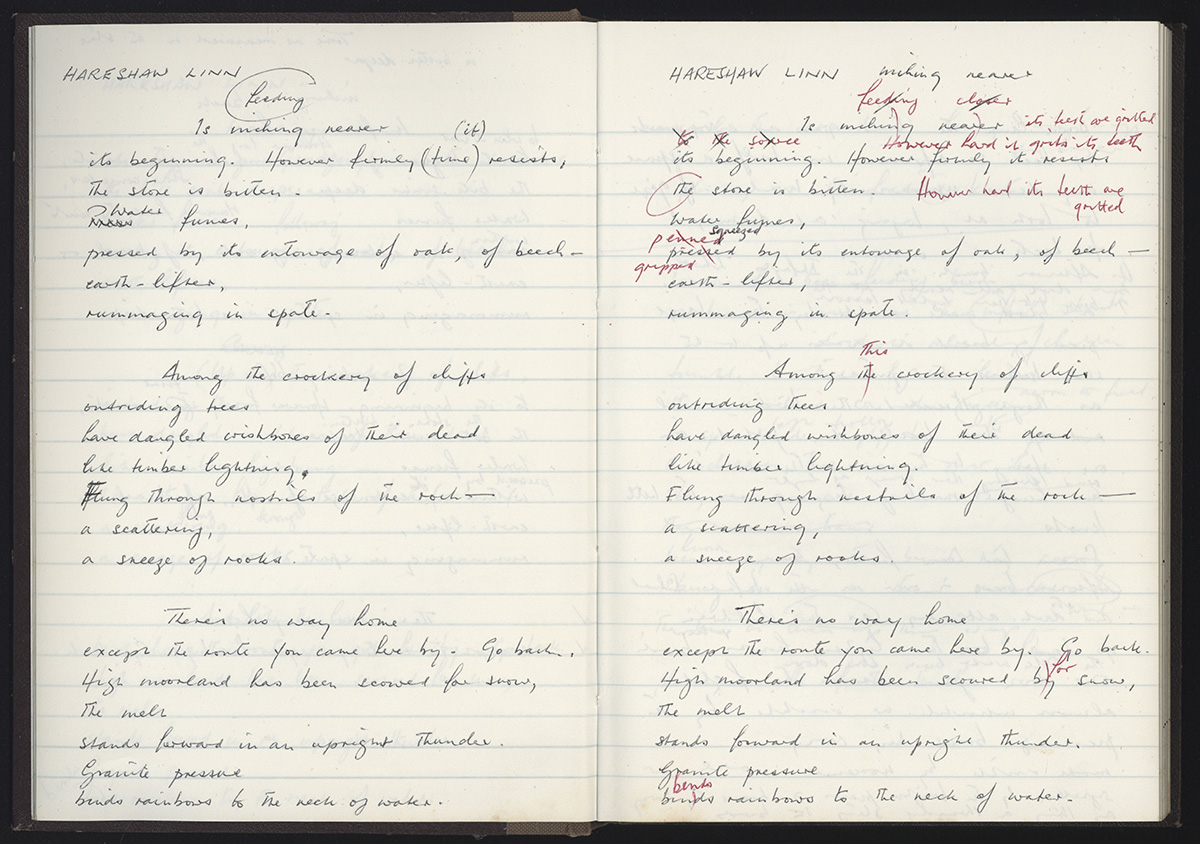 HARESHAW LINN
feeding
Is inching nearer (it)
its beginning. However firmly (time) resists,
the stone is bitten.
Water fumes,
pressed by its entowage of oak, of beech —
earth-lifter,
rummaging in spate.
Among the crockery of cliffs
outriding trees
have dangled wishbones of their dead
like timber lightning.
Flung through nostrils of the rock —
a scattering,
a sneeze of rooks.
There's no way home
except the route you came here by. Go back.
High moorland has been scoured for snow,
the melt
stands forward in an upright thunder.
Granite pressure
binds rainbows to the neck of water.
HARESHAW LINN inching nearer
feeding closer
Is inching nearer its teeth are gritted
to the source However hard it grits its teeth
its beginning. However firmly it resists
the stone is bitten. However hard its teeth are
gritted
Water fumes,
penned squeezed
pressed by its entowage of oak, of beech —
gripped
earth-lifter,
rummaging in spate.
This
Among the crockery of cliffs
outriding trees
have dangled wishbones of their dead
like timber lightning.
Flung through nostrils of the rock —
a scattering,
a sneeze of rooks.
There's no way home
except the route you came here by. Go back.
for
High moorland has been scoured by snow,
the melt
stands forward in an upright thunder.
Granite pressure
bends
binds rainbows to the neck of water.